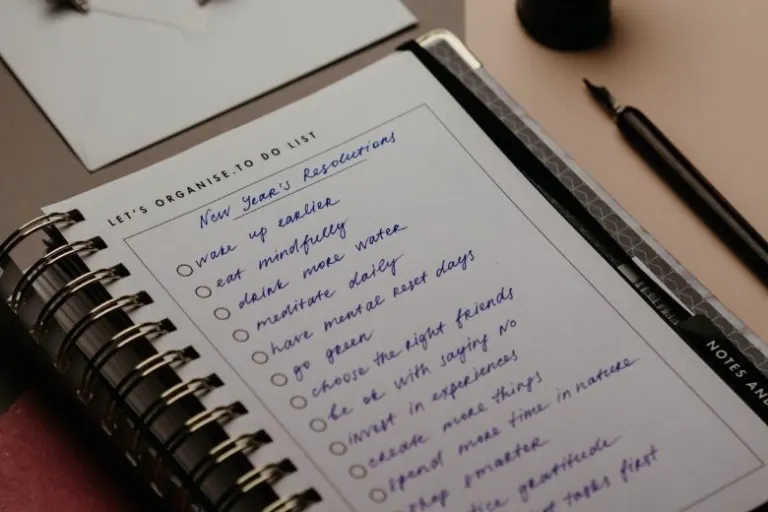 LET'S ORGANISE.TO DO LIST
New Year's Resolutions
wake up earlier
eat mindfully
drink more water
meditate daily
have mental reset days
go green
choose the right friends
be ok with saying NO
invest in experiences
create more things
spend more time in nature
shop smarter
gratitude
tasks first
NOTES AND